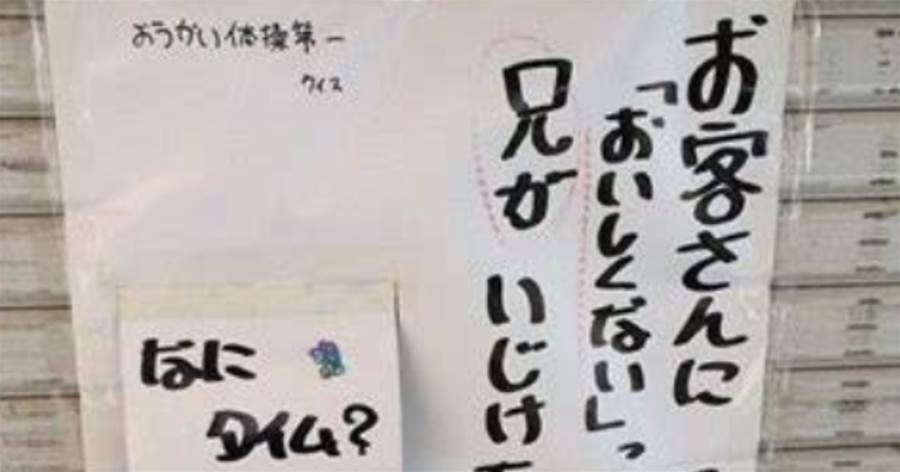 お客さんに
「おいしくない」っ
兄が いじけ
ようかい体操第一
クイズ
なに
タイム?